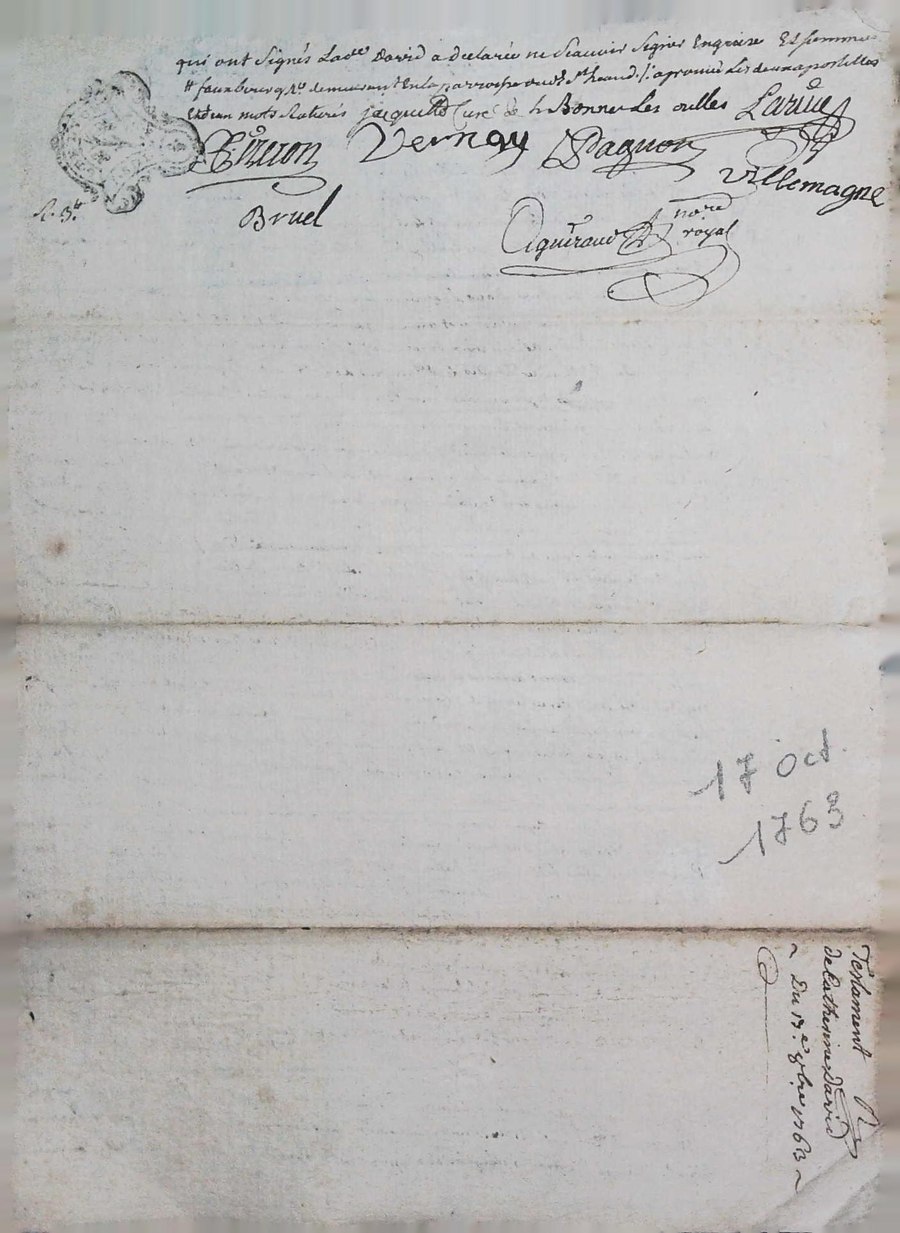 qui ont signés Lad.te David a declarée ne sçavoir signer Enquise Et sommée
# faux bourg # demeurant En la parroisse St heand / aprouvé Les deux apostilles
Et mots Raturés jacquette Curé de st Bonnet Les oulles Larue
Vernay Pagnon
Villemagne
R. 3.tt Bruel
Aguiraud no.re
royal
17 Oct.
1763
Testament
de Catherine David
~ Du 17.e 8bre 1763 ~